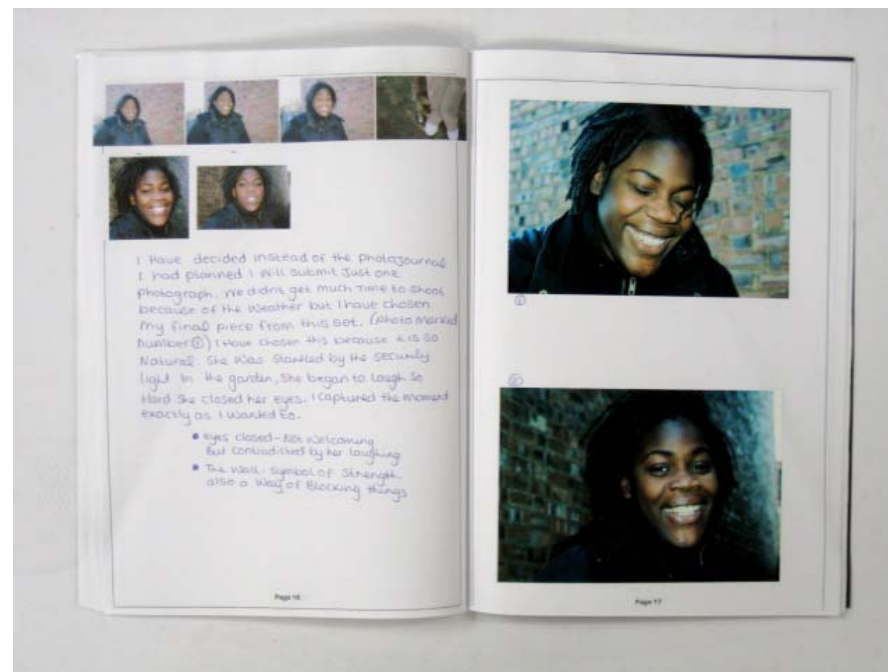 I Have decided instead of the Photojournal
I had planned I will submit Just one
photograph. We didnt get much Time to shoot
because of the Weather but I have chosen
My final piece from this set. (photo Marked
number ①) I Have chosen this because it is so
Natural. She Was Startled by the security
light In the garden, She began to Laugh So
Hard She closed her eyes. I captured the Moment
exactly as I wanted to.
• eyes closed - Not Welcoming
But contradicted by her laughing
• The Wall - symbol of Strength
also a Way of Blocking things
Page 16
①
②
Page 17